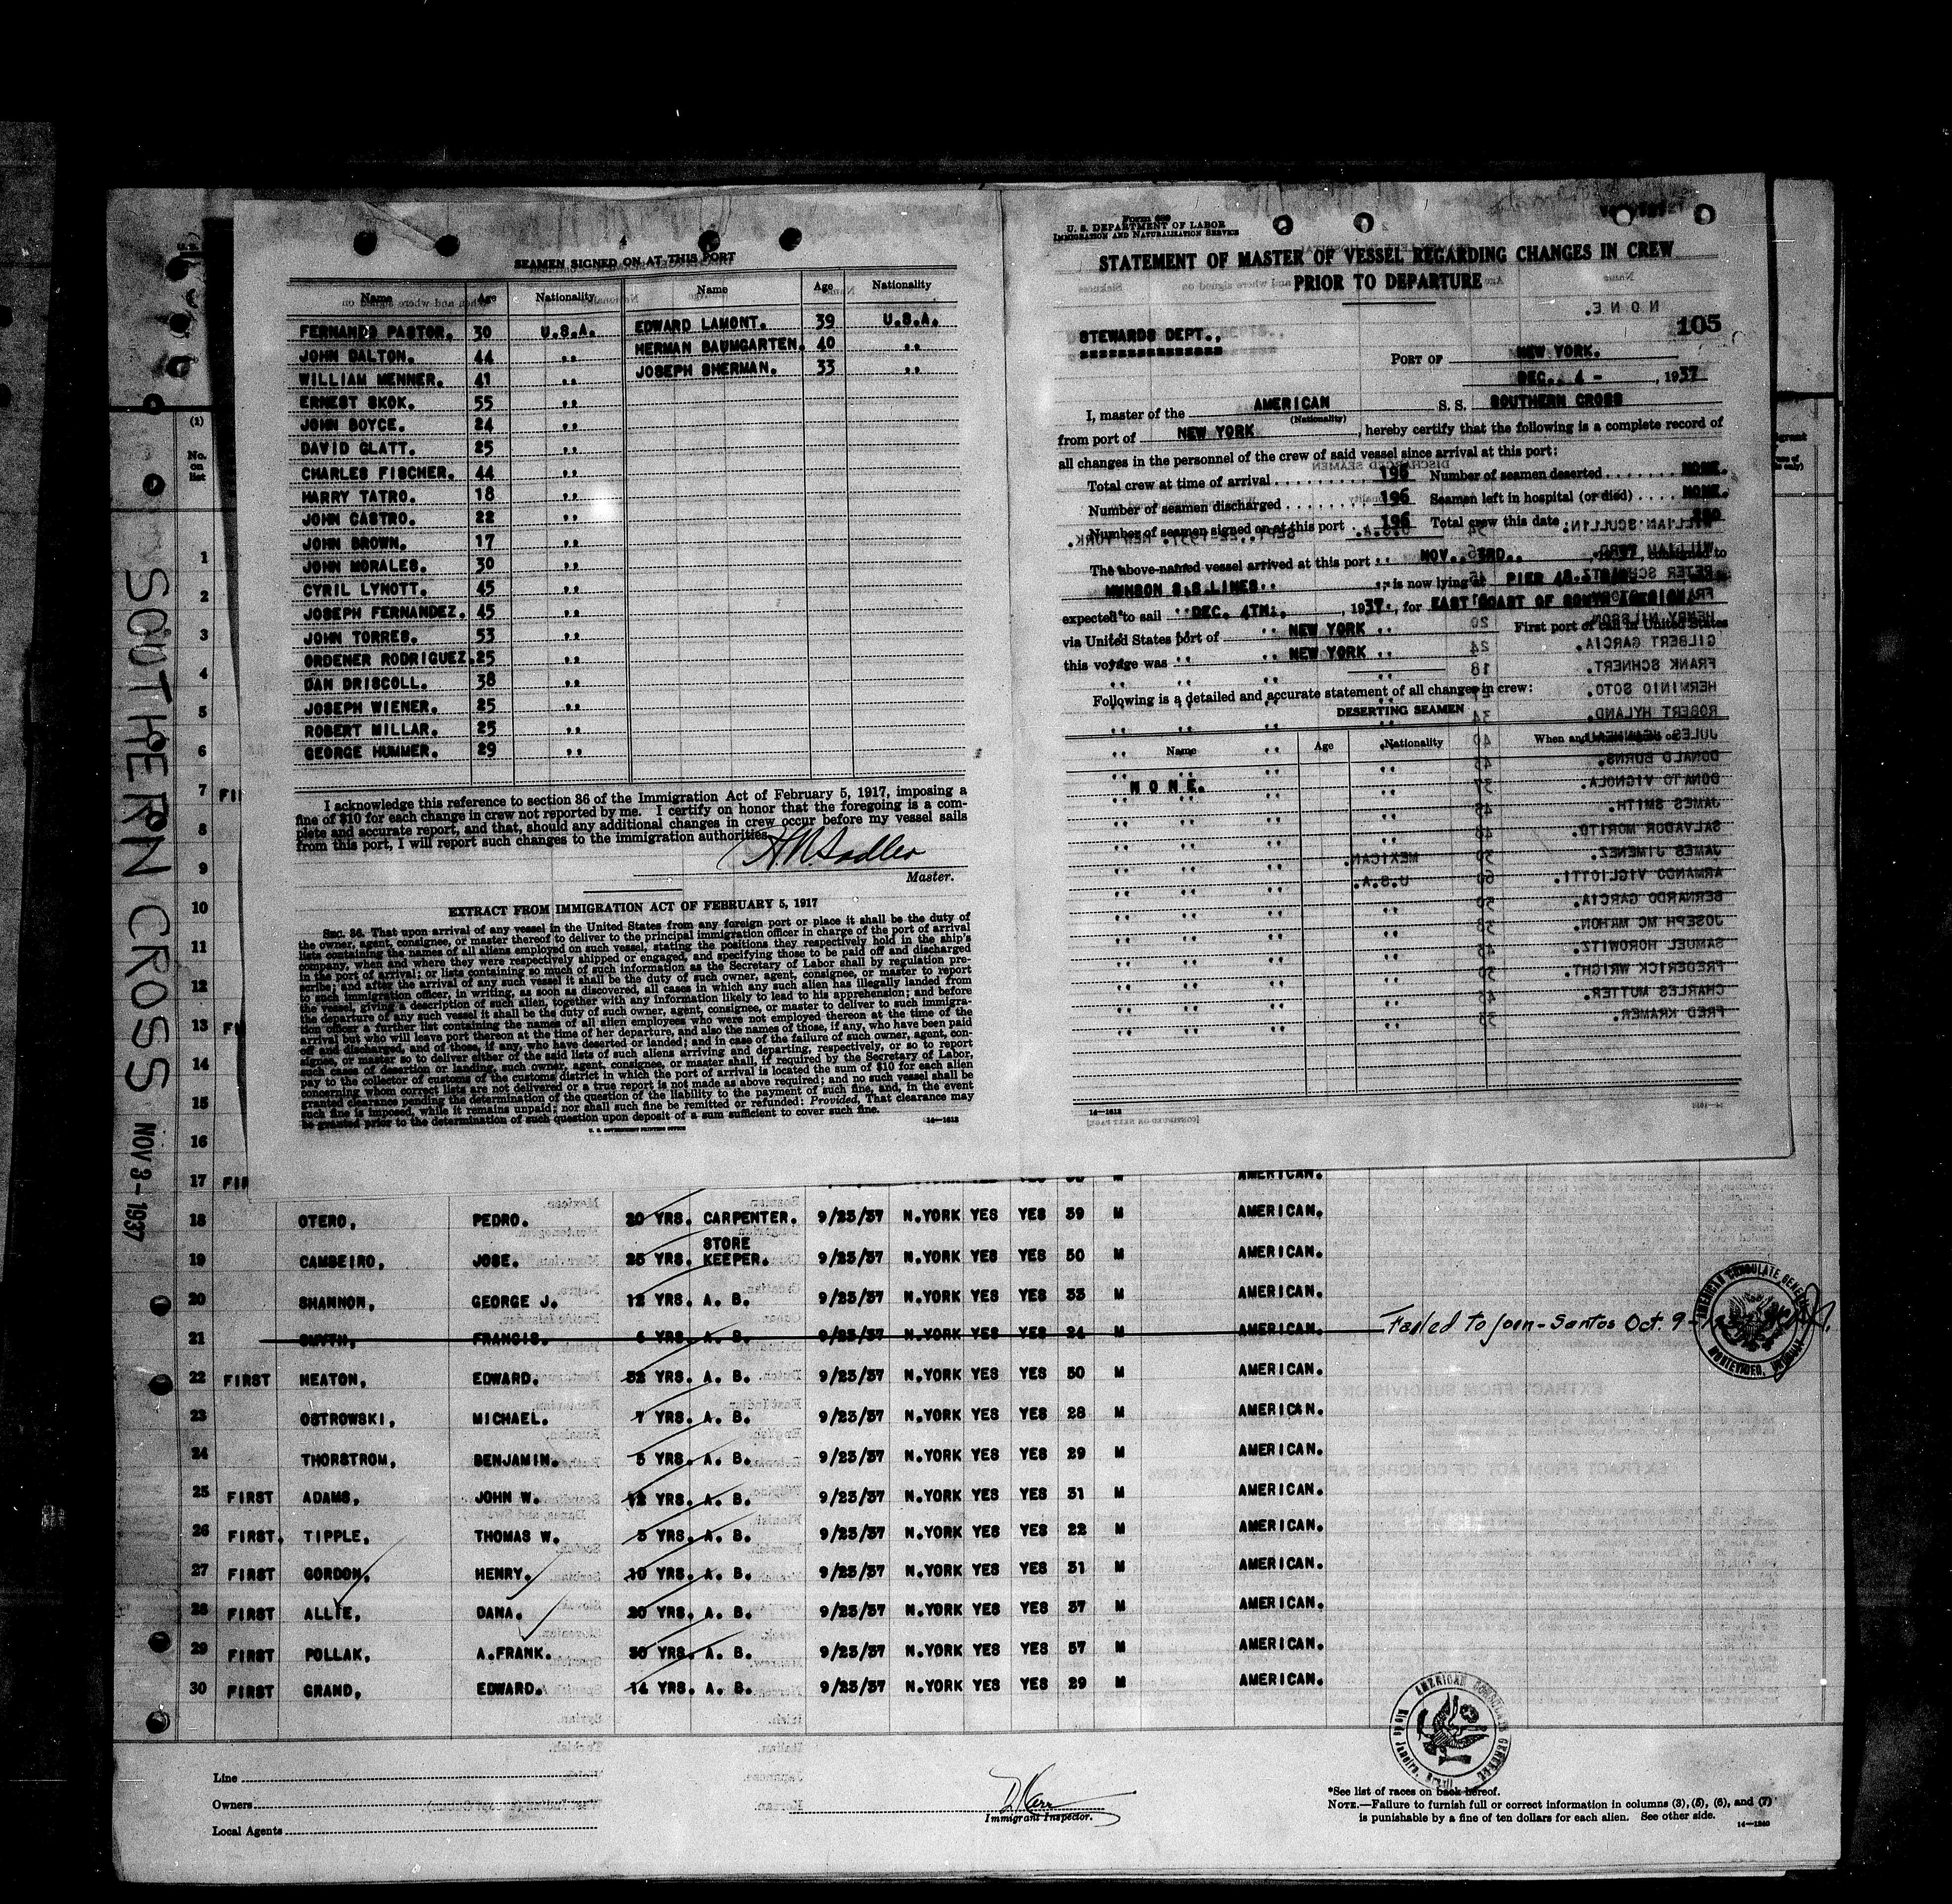 SEAMEN SIGNED ON AT THIS PORT
Name Age Nationality Name Age Nationality
FERNANDO PASTOR. 30 U.S.A. EDWARD LAMONT. 39 U.S.A.
JOHN DALTON. 44 ,, HERMAN BAUMGARTEN. 40 ,,
WILLIAM MENNER. 41 ,, JOSEPH SHERMAN. 33 ,,
ERNEST SKOK. 55 ,,
JOHN BOYCE. 24 ,,
DAVID GLATT. 25 ,,
CHARLES FISCHER. 44 ,,
HARRY TATRO. 18 ,,
JOHN CASTRO. 22 ,,
JOHN BROWN. 17 ,,
JOHN MORALES. 30 ,,
CYRIL LYNOTT. 45 ,,
JOSEPH FERNANDEZ. 45 ,,
JOHN TORRES. 53 ,,
ORDENER RODRIGUEZ. 25 ,,
DAN DRISCOLL. 38 ,,
JOSEPH WIENER. 25 ,,
ROBERT MILLAR. 25 ,,
GEORGE HUMMER. 29 ,,
I acknowledge this reference to section 36 of the Immigration Act of February 5, 1917, imposing a
fine of $10 for each change in crew not reported by me. I certify on honor that the foregoing is a com-
plete and accurate report, and that, should any additional changes in crew occur before my vessel sails
from this port, I will report such changes to the immigration authorities.
Master.
EXTRACT FROM IMMIGRATION ACT OF FEBRUARY 5, 1917
SEC. 36. That upon arrival of any vessel in the United States from any foreign port or place it shall be the duty of
the owner, agent, consignee, or master thereof to deliver to the principal immigration officer in charge of the port of arrival
lists containing the names of all aliens employed on such vessel, stating the positions they respectively hold in the ship's
company, when and where they were respectively shipped or engaged, and specifying those to be paid off and discharged
in the port of arrival; or lists containing so much of such information as the Secretary of Labor shall by regulation pre-
scribe; and after the arrival of any such vessel it shall be the duty of such owner, agent, consignee, or master to report
to such immigration officer, in writing, as soon as discovered, all cases in which any such alien has illegally landed from
the vessel, giving a description of such alien, together with any information likely to lead to his apprehension; and before
the departure of any such vessel it shall be the duty of such owner, agent, consignee, or master to deliver to such immigra-
tion officer a further list containing the names of all alien employees who were not employed thereon at the time of the
arrival but who will leave port thereon at the time of her departure, and also the names of those, if any, who have been paid
off and discharged, and of those, if any, who have deserted or landed; and in case of the failure of such owner, agent, con-
signee, or master so to deliver either of the said lists of such aliens arriving and departing, respectively, or so to report
such cases of desertion or landing, such owner, agent, consignee, or master shall, if required by the Secretary of Labor,
pay to the collector of customs of the customs district in which the port of arrival is located the sum of $10 for each alien
concerning whom correct lists are not delivered or a true report is not made as above required; and no such vessel shall be
granted clearance pending the determination of the question of the liability to the payment of such fine, and, in the event
such fine is imposed, while it remains unpaid; nor shall such fine be remitted or refunded: Provided, That clearance may
be granted prior to the determination of such question upon deposit of a sum sufficient to cover such fine.
U. S. GOVERNMENT PRINTING OFFICE 14—1612
Form 689
U. S. DEPARTMENT OF LABOR
IMMIGRATION AND NATURALIZATION SERVICE
STATEMENT OF MASTER OF VESSEL REGARDING CHANGES IN CREW
PRIOR TO DEPARTURE
105
STEWARDS DEPT.,
PORT OF NEW YORK.
DEC. 4 - , 1937
I, master of the AMERICAN S. S. SOUTHERN CROSS
(Nationality)
from port of NEW YORK, hereby certify that the following is a complete record of
all changes in the personnel of the crew of said vessel since arrival at this port:
Total crew at time of arrival 196 Number of seamen deserted NONE.
Number of seamen discharged 196 Seamen left in hospital (or died) NONE.
Number of seamen signed on at this port 196 Total crew this date
The above-named vessel arrived at this port NOV. 3RD., consigned to
MUNSON S.S LINES. is now lying at PIER
expected to sail DEC. 4TH. , 1937, for EAST COAST OF SOUTH AMERICA
via United States port of NEW YORK First port of call in United States
this voyage was NEW YORK
Following is a detailed and accurate statement of all changes in crew:
DESERTING SEAMEN
Name Age Nationality When and where signed on
NONE.
14—1612
SOUTHERN CROSS NOV 3-1937
(1)
No. on list
1
2
3
4
5
6
7
8
9
10
11
12
13
14
15
16
17 AMERICAN.
18 OTERO, PEDRO. 20 YRS. CARPENTER. 9/23/37 N.YORK YES YES 39 M AMERICAN.
19 CAMBEIRO, JOSE. 25 YRS. STORE KEEPER. 9/23/37 N.YORK YES YES 50 M AMERICAN.
20 SHANNON, GEORGE J. 12 YRS. A. B. 9/23/37 N.YORK YES YES 33 M AMERICAN.
21 SMYTH, FRANCIS. 6 YRS. A. B. 9/23/37 N.YORK YES YES 24 M AMERICAN. Failed to join - Santos Oct. 9-
22 FIRST HEATON, EDWARD. 32 YRS. A. B. 9/23/37 N.YORK YES YES 50 M AMERICAN.
23 OSTROWSKI, MICHAEL. 7 YRS. A. B. 9/23/37 N.YORK YES YES 28 M AMERICAN.
24 THORSTROM, BENJAMIN. 5 YRS. A. B. 9/23/37 N.YORK YES YES 29 M AMERICAN.
25 FIRST ADAMS, JOHN W. 12 YRS. A. B. 9/23/37 N.YORK YES YES 31 M AMERICAN.
26 FIRST. TIPPLE, THOMAS W. 5 YRS. A. B. 9/23/37 N.YORK YES YES 22 M AMERICAN.
27 FIRST GORDON, HENRY. 10 YRS. A. B. 9/23/37 N.YORK YES YES 31 M AMERICAN.
28 FIRST ALLIE, DANA. 20 YRS. A. B. 9/23/37 N.YORK YES YES 37 M AMERICAN.
29 FIRST POLLAK, A.FRANK. 30 YRS. A. B. 9/23/37 N.YORK YES YES 57 M AMERICAN.
30 FIRST GRAND, EDWARD. 14 YRS. A. B. 9/23/37 N.YORK YES YES 29 M AMERICAN.
AMERICAN CONSULATE GENERAL MONTEVIDEO, URUGUAY
AMERICAN CONSULATE GENERAL Rio de Janeiro, Brazil
Line
Owners
Local Agents
D Kerr
Immigrant Inspector.
*See list of races on back hereof.
NOTE.—Failure to furnish full or correct information in columns (3), (5), (6), and (7)
is punishable by a fine of ten dollars for each alien. See other side.
14—1240